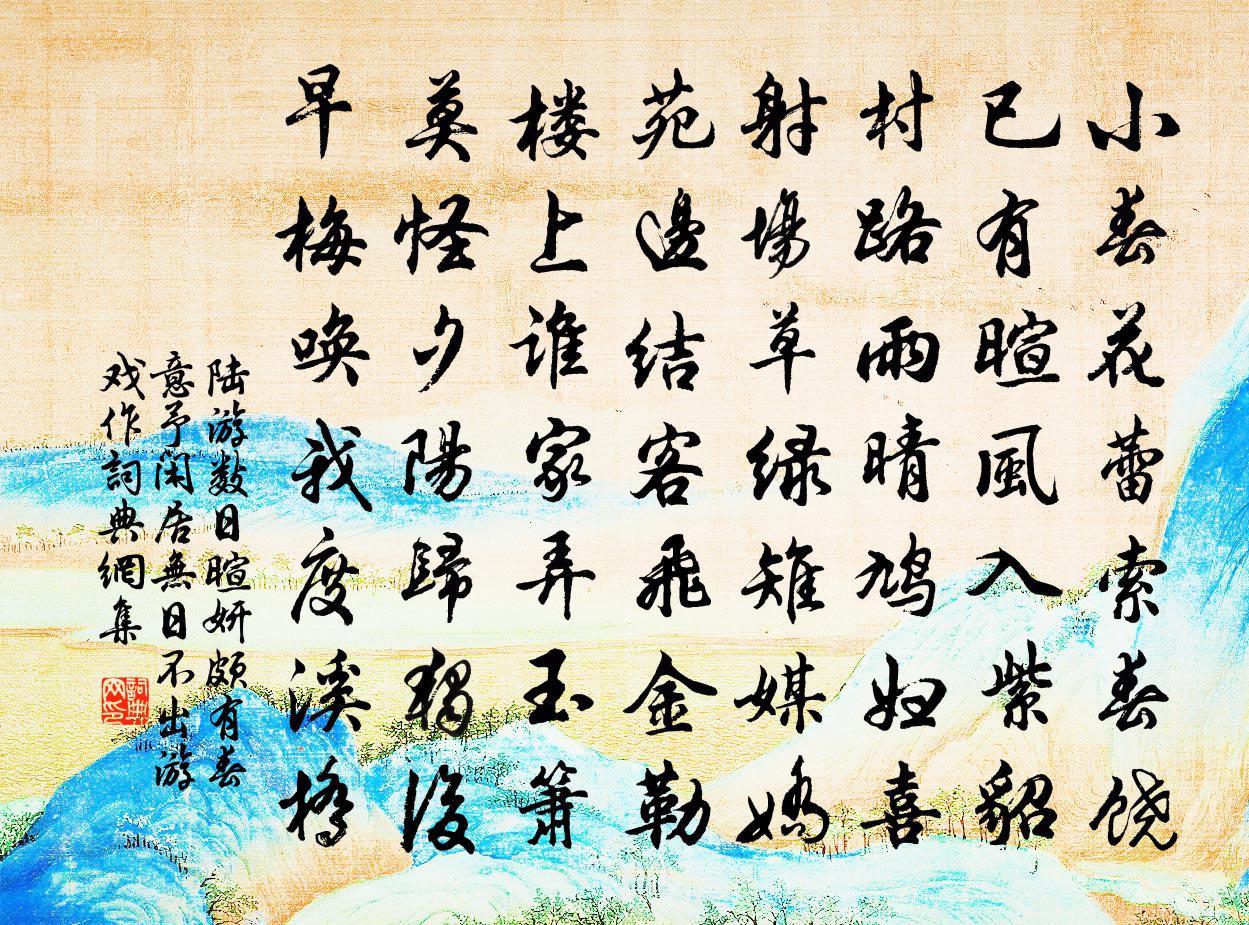 小春花蕾索春饶
已有暄風入紫貂
村路雨晴鸠妇喜
射場草绿雉媒嬌
苑邊结客飛金勒
楼上谁家弄玉箫
莫怪夕陽歸獨後
早梅唤我度溪橋
陆游数日暄妍颇有春
意予闲居無日不出游
戏作詞典網集
詞典网印